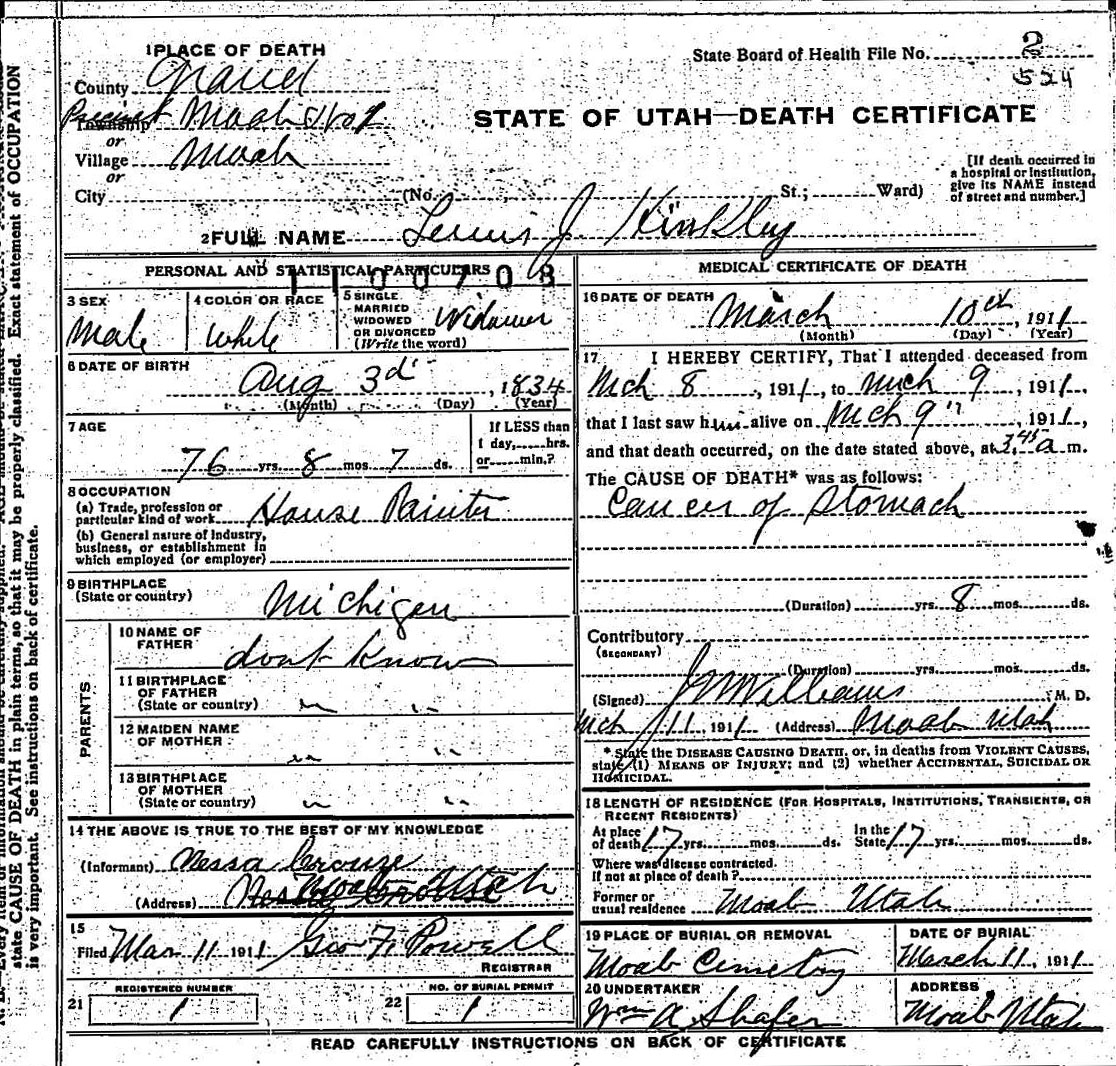 1 PLACE OF DEATH
County Grand
Precinct Township Moab
or
Village Moab
or
City (No. St.; Ward)
State Board of Health File No. 2
524
STATE OF UTAH—DEATH CERTIFICATE
[If death occurred in
a hospital or institution,
give its NAME instead
of street and number.]
2 FULL NAME Lewis J Kinkley
PERSONAL AND STATISTICAL PARTICULARS
1100708
3 SEX
Male
4 COLOR OR RACE
White
5 SINGLE
MARRIED
WIDOWED
OR DIVORCED
(Write the word)
Widower
6 DATE OF BIRTH
Aug 3d, 1834
(Month) (Day) (Year)
7 AGE
76 yrs. 8 mos. 7 ds.
If LESS than
1 day, hrs.
or min.?
8 OCCUPATION
(a) Trade, profession or
particular kind of work House Painter
(b) General nature of Industry,
business, or establishment in
which employed (or employer)
9 BIRTHPLACE
(State or country)
Michigan
PARENTS
10 NAME OF
FATHER
dont know
11 BIRTHPLACE
OF FATHER
(State or country) " "
12 MAIDEN NAME
OF MOTHER
" "
13 BIRTHPLACE
OF MOTHER
(State or country) " "
14 THE ABOVE IS TRUE TO THE BEST OF MY KNOWLEDGE
(Informant) Nessa Crouze
(Address) Moab Utah
15
Filed Mar 11 1911 Geo F Powell
REGISTRAR
21 REGISTERED NUMBER
1
22 NO. OF BURIAL PERMIT
1
MEDICAL CERTIFICATE OF DEATH
16 DATE OF DEATH
March 10th, 1911
(Month) (Day) (Year)
17 I HEREBY CERTIFY, That I attended deceased from
Mch 8, 1911, to Mch 9, 1911,
that I last saw him alive on Mch 9", 1911,
and that death occurred, on the date stated above, at 3.45 a m.
The CAUSE OF DEATH* was as follows:
Cancer of Stomach
(Duration) yrs. 8 mos. ds.
Contributory
(SECONDARY)
(Duration) yrs. mos. ds.
(Signed) J W Williams M. D.
Mch 11, 1911 (Address) Moab Utah
* State the DISEASE CAUSING DEATH, or, in deaths from VIOLENT CAUSES,
state (1) MEANS OF INJURY; and (2) whether ACCIDENTAL, SUICIDAL OR
HOMICIDAL.
18 LENGTH OF RESIDENCE (FOR HOSPITALS, INSTITUTIONS, TRANSIENTS, OR
RECENT RESIDENTS)
At place
of death 17 yrs. mos. ds.
In the
State 17 yrs. mos. ds.
Where was disease contracted.
If not at place of death?
Former or
usual residence Moab Utah
19 PLACE OF BURIAL OR REMOVAL
Moab Cemetry
DATE OF BURIAL
March 11, 1911
20 UNDERTAKER
Wm A Shafer
ADDRESS
Moab Utah
READ CAREFULLY INSTRUCTIONS ON BACK OF CERTIFICATE
state CAUSE OF DEATH in plain terms, so that it may be properly classified. Exact statement of OCCUPATION
is very important. See instructions on back of certificate.